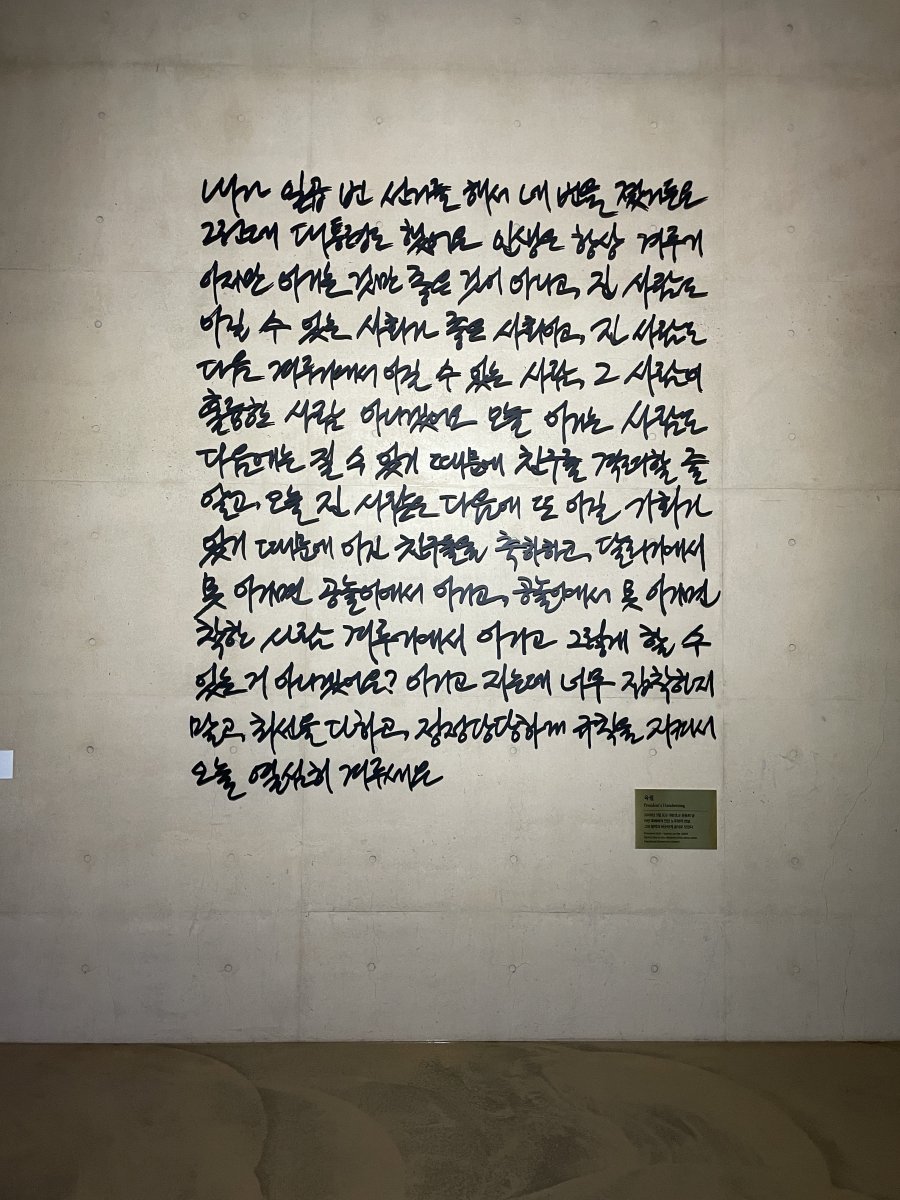 내가 일곱 번 선거를 해서 네 번을 졌거든요
그런데 대통령도 했어요 인생은 항상 겨루기
이지만 이기는 것만 좋은 것이 아니고, 진 사람도
이길 수 있는 사회가 좋은 사회이고, 진 사람도
다음 겨루기에서 이길 수 있는 사람, 그 사람이
훌륭한 사람 아니겠어요 오늘 이기는 사람도
다음에는 질 수 있기 때문에 친구를 격려할 줄
알고, 오늘 진 사람은 다음에 또 이길 기회가
있기 때문에 이긴 친구들을 축하하고, 달리기에서
못 이기면 공놀이에서 이기고, 공놀이에서 못 이기면
착한 사람 겨루기에서 이기고 그렇게 할 수
있는 거 아니겠어요? 이기고 지는데 너무 집착하지
말고, 최선을 다하고, 정정당당하게 규칙을 지켜서
오늘 열심히 겨루세요
President's Handwriting